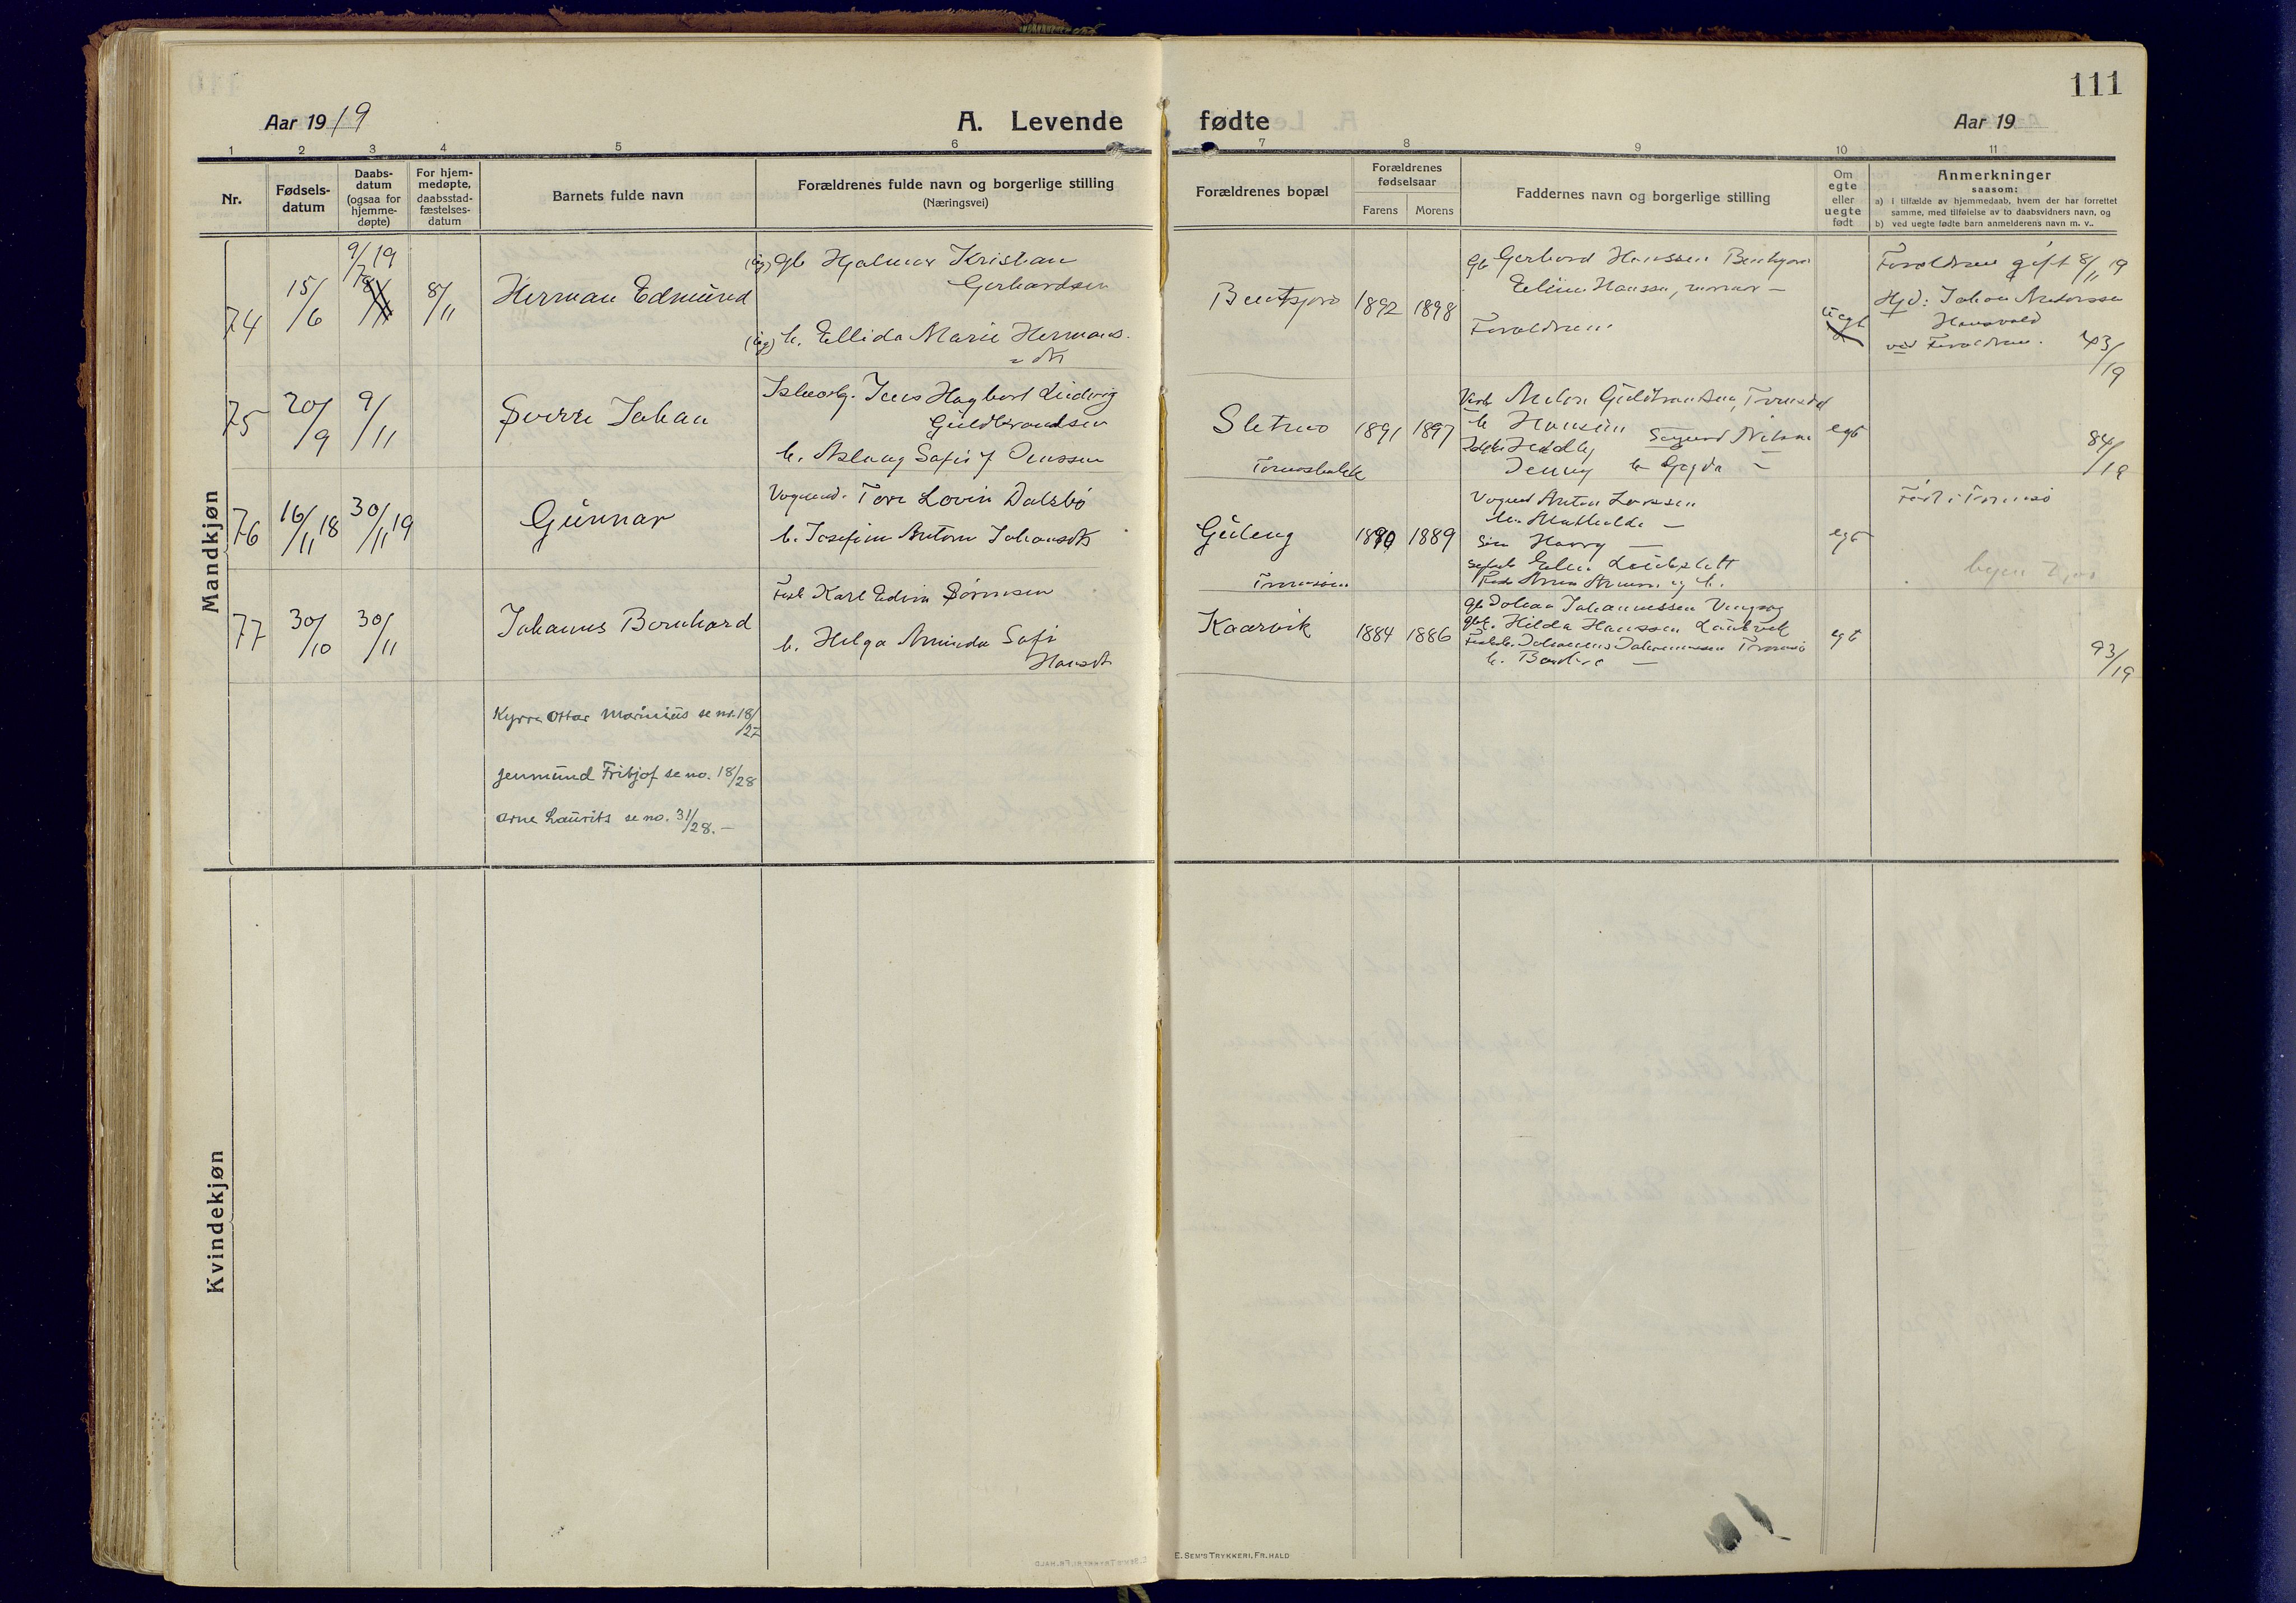 111
Aar 1919
A. Levende fødte
Aar 19
1 2 3 4 5 6 7 8 9 10 11
Nr.
Fødsels-
datum
Daabs-
datum
(ogsaa for
hjemme-
døpte)
For hjem-
medøpte,
daabsstad-
fæstelses-
datum
Barnets fulde navn
Forældrenes fulde navn og borgerlige stilling
(Næringsvei)
Forældrenes bopæl
Forældrenes
fødselsaar
Farens Morens
Faddernes navn og borgerlige stilling
Om
egte
eller
uegte
født
Anmerkninger
saasom:
a) i tilfælde av hjemmedaab, hvem der har forrettet
samme, med tilføielse av to daabsvidners navn, og
b) ved uegte fødte barn anmelderens navn m. v..
Mandkjøn
74
15/6
9/7 19
8/11
Herman Edmund
(ug) gb Hjalmar Kristian
Gerhardsen
(ug) h. Ellida Marie Hermans
dt
Bentsjoro
1892 1898
gb Gerhard Hanssen Bentsjoro
Eline Hanssen, mormor —
Forældrene
uegt
Forældrene gift 8/11 19
Hjd: Johan
ved Forældrene.
43/19
75
20/9
9/11
Sverre Johan
Jens Hagbart Ludvig
Guldbrandsen
h. Aslaug Sofie f. Jenssen
Sletnes
Tromsdalen
1891 1897
Guldbrandsen, Tromsdal
h. Hansine Sigurd Nilsen
Jenny h. Gyda —
egt
84/19
76
16/11 18
30/11 19
Gunnar
Vognmd. Tore Lovin Dalsbø
h. Josefine Antone Johansdt
Guleng
Tromsøen
1890 1889
Vognmd Anton Larssen
h. Mathilde —
Søn Harry —
egt
Født i Tromsø
77
30/10
30/11
Johannes Bernhard
Fisk Karl Edvin Sørensen
h. Helga Aminda Sofie
Hansdt
Kaarvik
1884 1886
gb Johan Johannessen Vengsøy
gbk. Hilda Hanssen Laukvik
Johannes Johannessen Tromsø
h. —
egt
93/19
Kyrre Ottar Marinius se nr. 18/27
Jenmund Fritjof se no. 18/28
Arne Laurits se no. 31/28. —
Kvindekjøn
E. SEM'S TRYKKERI, FR.HALD